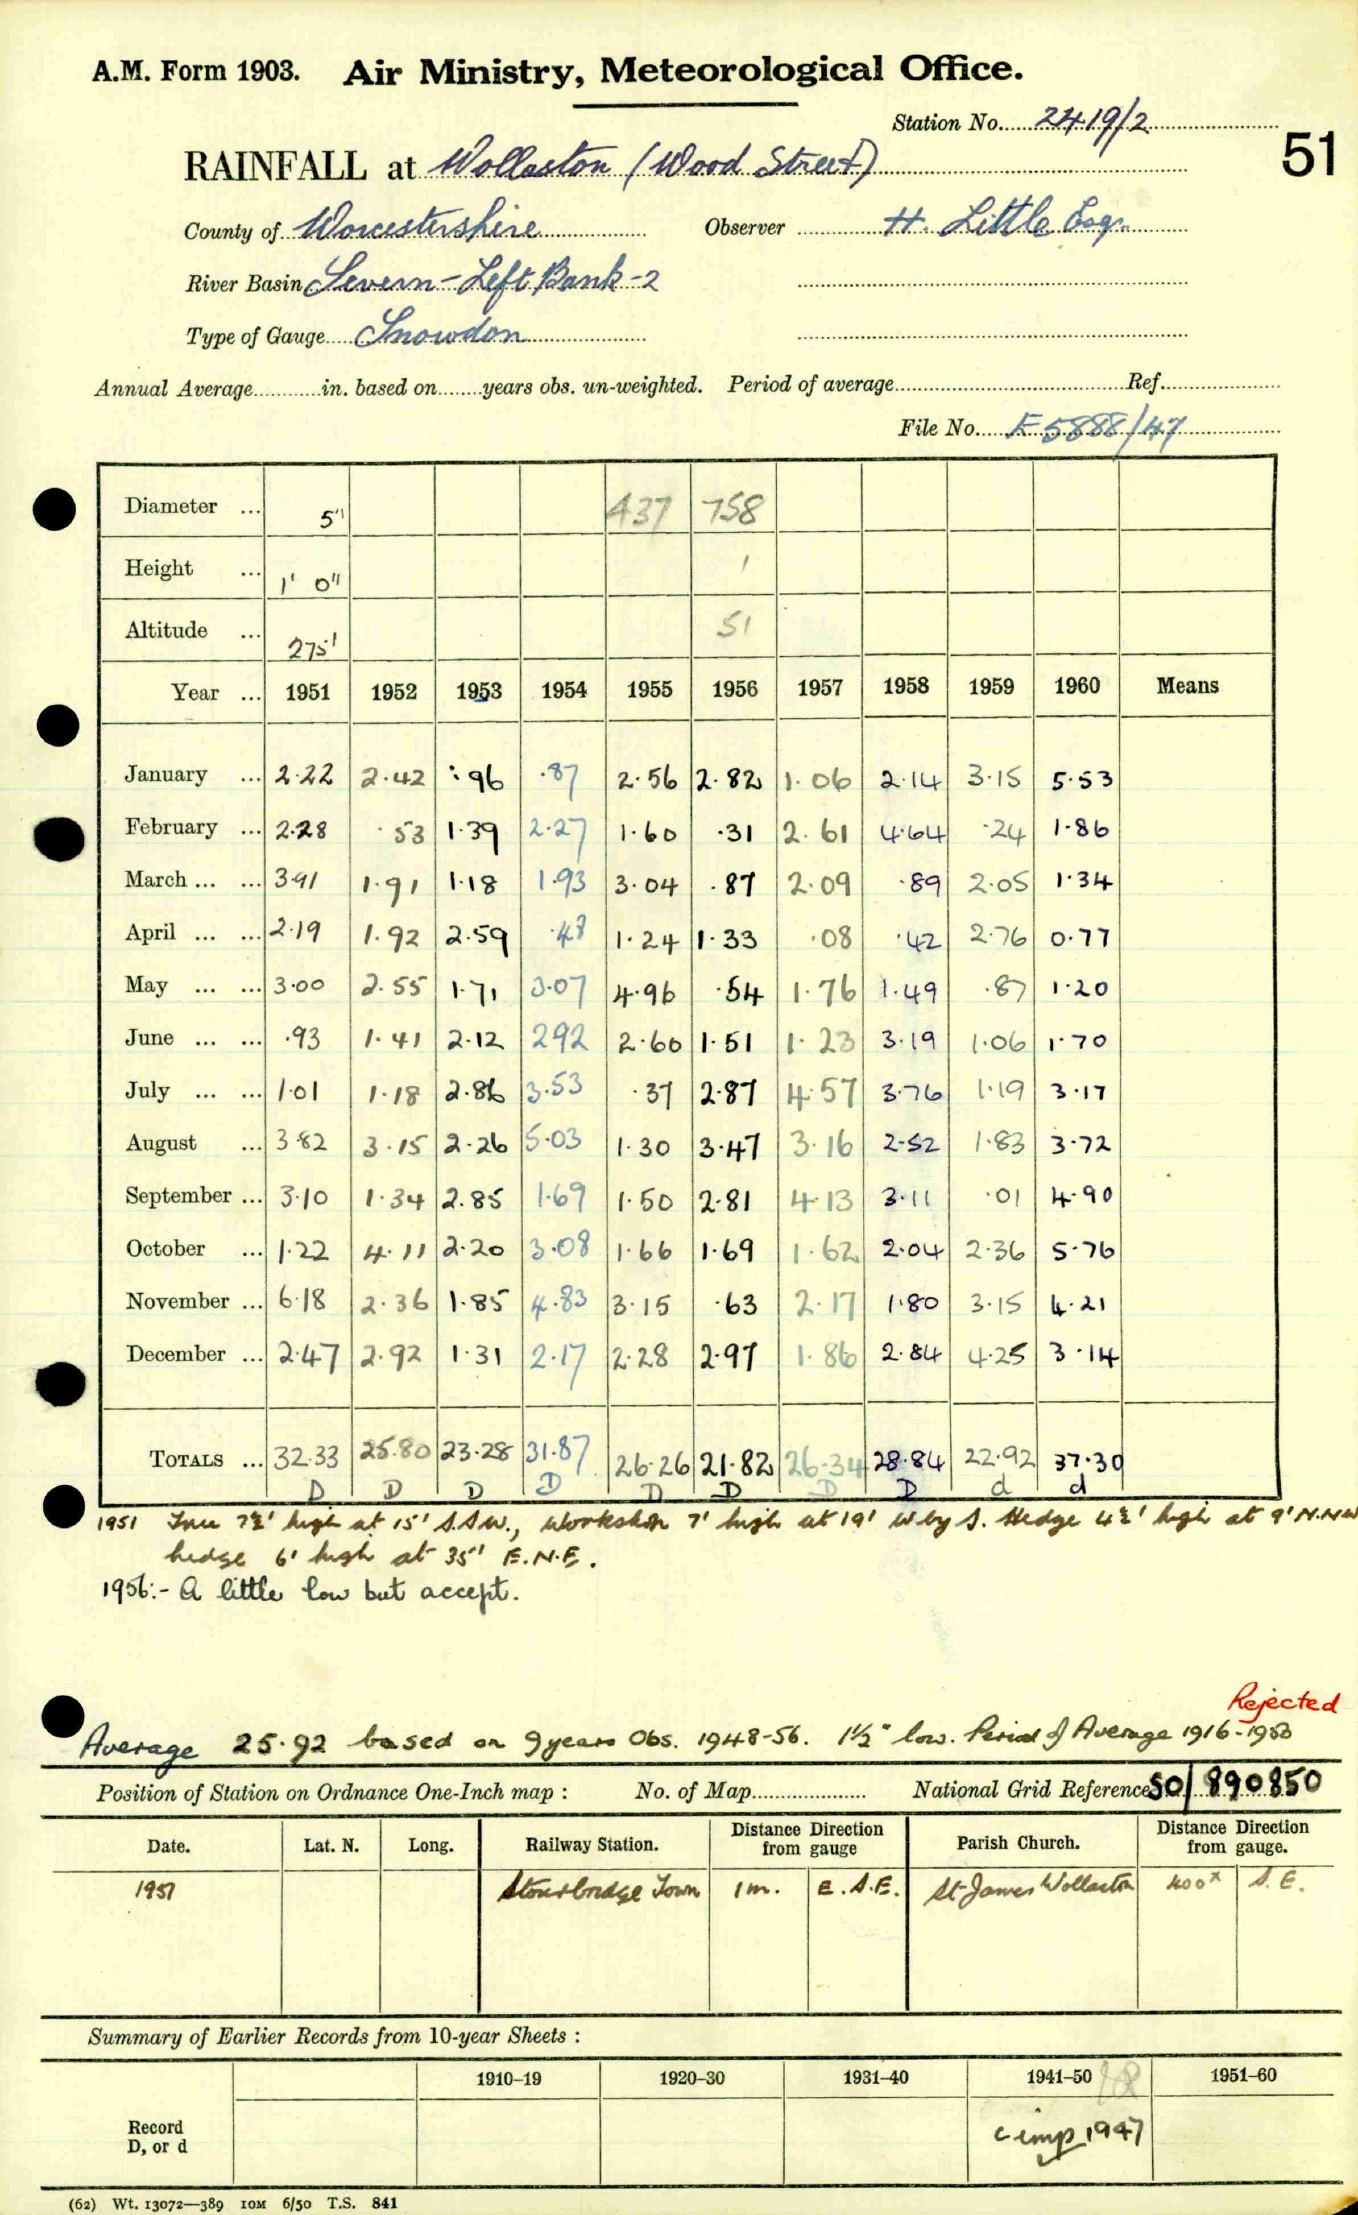 A.M. Form 1903. Air Ministry, Meteorological Office.
Station No. 2419/2
51
RAINFALL at Wollaston (Wood Street)
County of Worcestershire Observer H. Little Esq.
River Basin Severn-Left Bank-2
Type of Gauge Snowdon
Annual Average in. based on years obs. un-weighted. Period of average Ref.
File No. F5888/47
Diameter ... 5" 437 758
Height ... 1' 0" 1
Altitude ... 275' 51
Year ... 1951 1952 1953 1954 1955 1956 1957 1958 1959 1960 Means
January ... 2.22 2.42 .96 .87 2.56 2.82 1.06 2.14 3.15 5.53
February ... 2.28 .53 1.39 2.27 1.60 .31 2.61 4.64 .24 1.86
March ... ... 3.91 1.91 1.18 1.93 3.04 .87 2.09 .89 2.05 1.34
April ... ... 2.19 1.92 2.59 .48 1.24 1.33 .08 .42 2.76 0.77
May ... ... 3.00 2.55 1.71 3.07 4.96 .54 1.76 1.49 .87 1.20
June ... ... .93 1.41 2.12 2.92 2.60 1.51 1.23 3.19 1.06 1.70
July ... ... 1.01 1.18 2.86 3.53 .37 2.87 4.57 3.76 1.19 3.17
August ... 3.82 3.15 2.26 5.03 1.30 3.47 3.16 2.52 1.83 3.72
September ... 3.10 1.34 2.85 1.69 1.50 2.81 4.13 3.11 .01 4.90
October ... 1.22 4.11 2.20 3.08 1.66 1.69 1.62 2.04 2.36 5.76
November ... 6.18 2.36 1.85 4.83 3.15 .63 2.17 1.80 3.15 4.21
December ... 2.47 2.92 1.31 2.17 2.28 2.97 1.86 2.84 4.25 3.14
TOTALS ... 32.33 25.80 23.28 31.87 26.26 21.82 26.34 28.84 22.92 37.30
D D D D D D D D d d
1951 Tree 7½' high at 15' S.S.W., Workshop 7' high at 19' W by S. Hedge 4½' high at 9' N.N.W
hedge 6' high at 35' E.N.E.
1956:- A little low but accept.
Rejected
Average 25.92 based on 9 years Obs. 1948-56. 1½" low. Period of Average 1916-1950
Position of Station on Ordnance One-Inch map : No. of Map National Grid Reference SO/890850
Date. Lat. N. Long. Railway Station. Distance Direction from gauge Parish Church. Distance Direction from gauge.
1951 Stourbridge Town 1m. E.S.E. St James Wollaston 400x S.E.
Summary of Earlier Records from 10-year Sheets :
1910–19 1920–30 1931–40 1941–50 1951–60
Record
D, or d
c imp 1947
(62) Wt. 13072—389 10M 6/50 T.S. 841